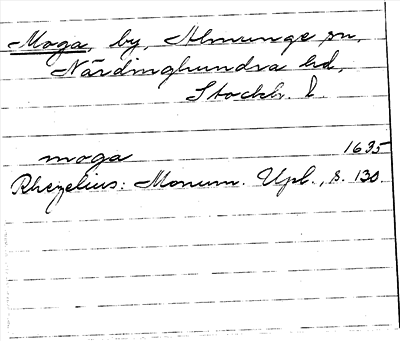 Moga, by, Almunge sn,
Närdinghundra hd,
Stockh. l.
moga 1635
Rhezelius: Monum. Upl., s. 130.